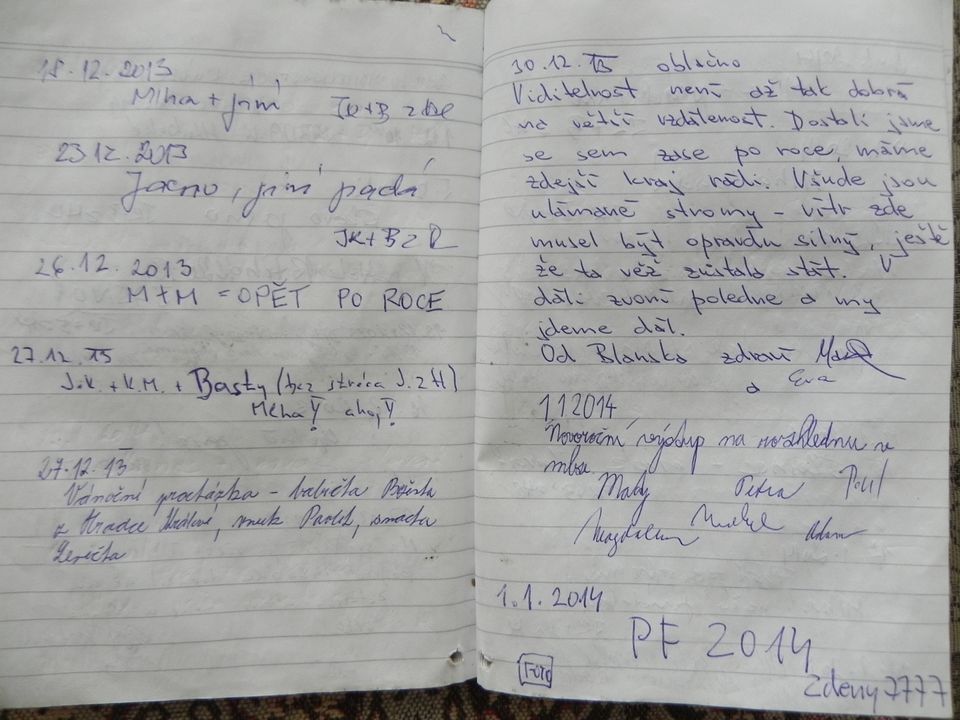 18.12.2013
Mlha + jiní JK+B z
23.12.2013
Jasno, jiní padá
JK+B z R
26.12.2013
M+M = OPĚT PO ROCE
27.12.13
J.K. + K.M. + Basty (bez strýca J. z H)
Mlha! ahoj!
27.12.13
Vánoční procházka - babička Božena
z Hradce Králové, vnuk Pavel, snacha
30.12.13 oblačno
Viditelnost není až tak dobrá
na větší vzdálenost. Dostali jsme
se sem zase po roce, máme
zdejší kraj rádi. Všude jsou
ulámané stromy - vítr zde
musel být opravdu silný, ještě
že ta věž zůstala stát. V
dáli zvoní poledne a my
jdeme dál.
Od Blanska zdraví
a Eva
1 1 2014
Novoroční výstup na rozhlednu v
mlze.
Petra
Magdalena Michal Adam
1.1.2014
PF 2014
Foto
Zdeny7777